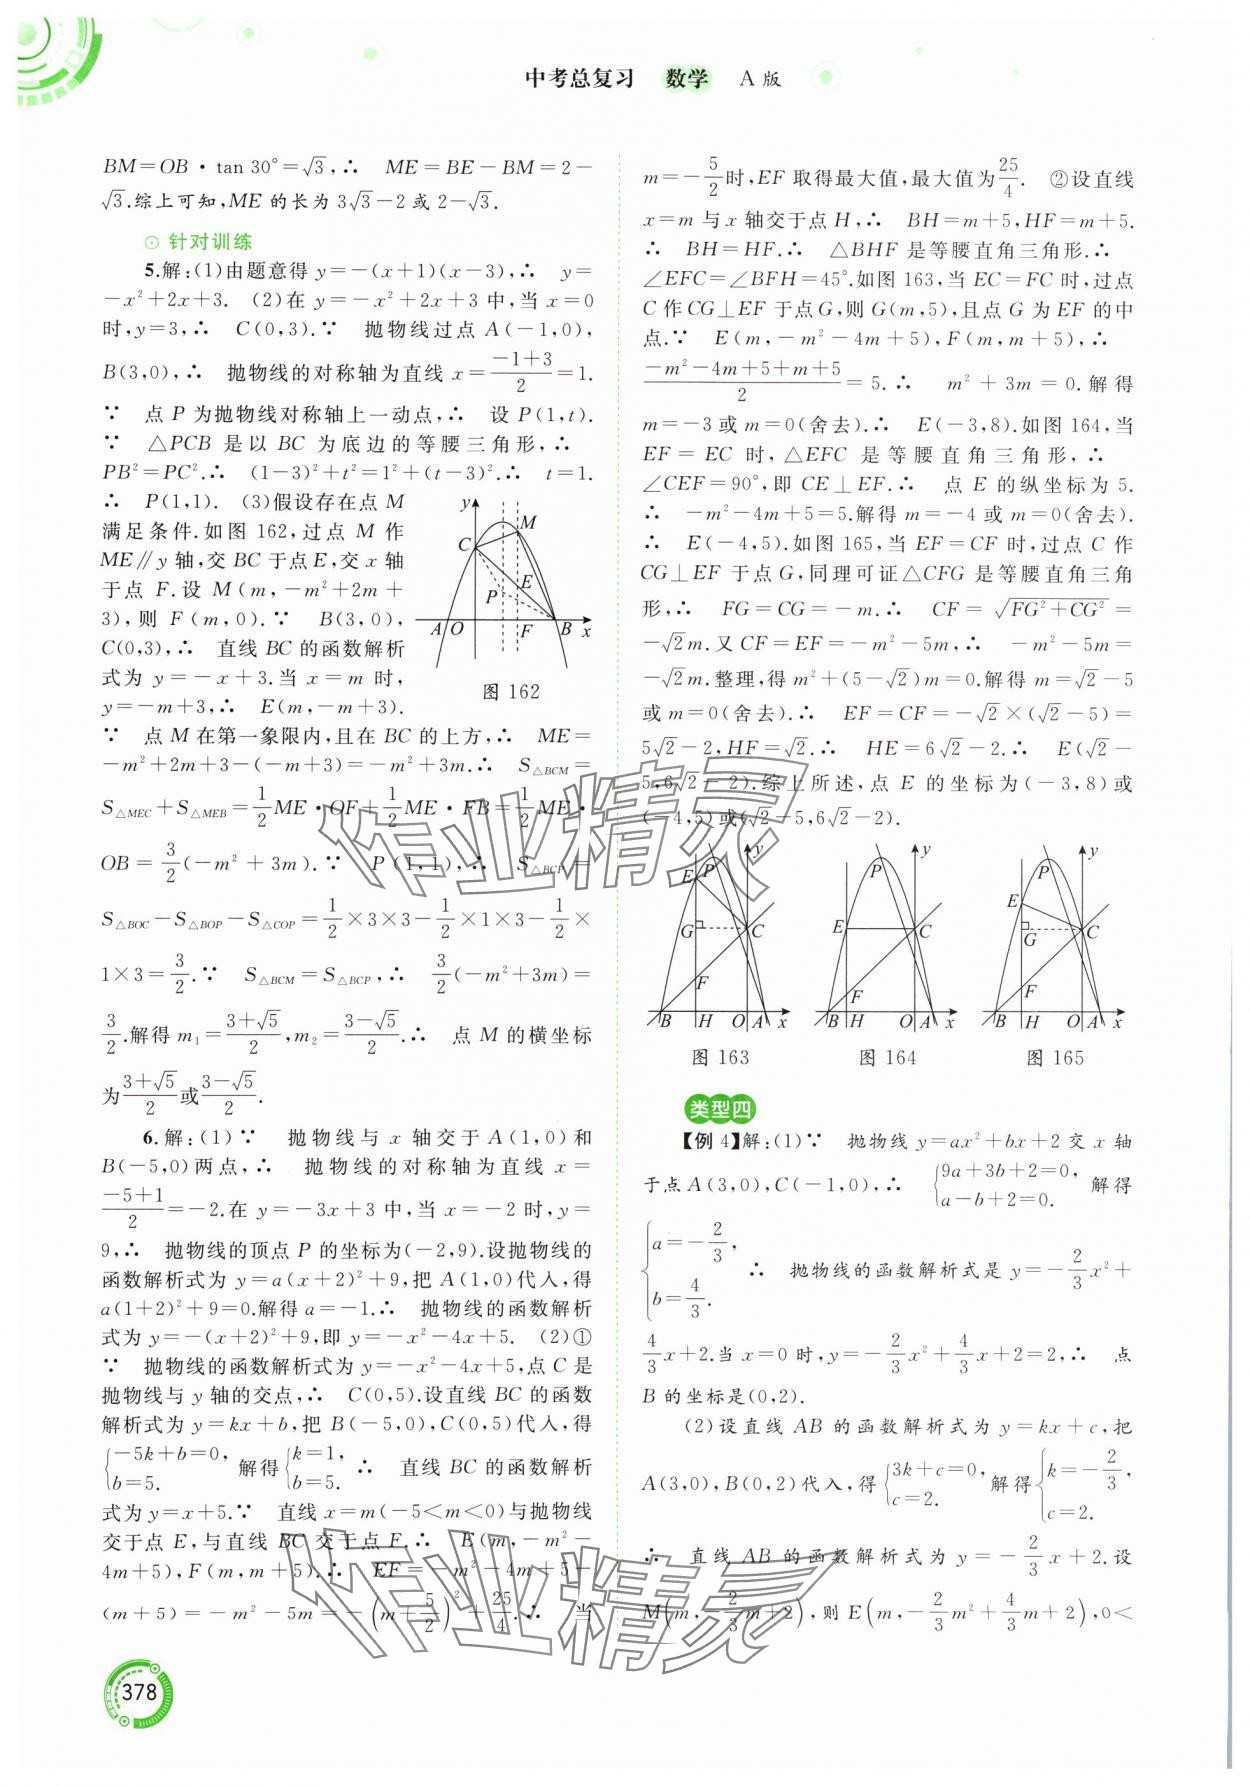 中考总复习 数学 A 版
BM=OB·tan 30°=√3,∴ ME=BE-BM=2-
√3.综上可知,ME的长为3√3-2或2-√3.
针对训练
5.解:(1)由题意得 y=-(x+1)(x-3),∴ y=
-x²+2x+3. (2)在 y=-x²+2x+3 中,当 x=0
时,y=3,∴ C(0,3).∵ 抛物线过点 A(-1,0),
B(3,0),∴ 抛物线的对称轴为直线 x=(-1+3)/2=1.
∵ 点 P 为抛物线对称轴上一动点,∴ 设 P(1,t).
∵ △PCB 是以 BC 为底边的等腰三角形,∴
PB²=PC².∴ (1-3)²+t²=1²+(t-3)².∴ t=1.
∴ P(1,1). (3)假设存在点 M
满足条件.如图 162,过点 M 作
ME∥y 轴,交 BC 于点 E,交 x 轴
于点 F.设 M(m,-m²+2m+
3),则 F(m,0).∵ B(3,0),
C(0,3),∴ 直线 BC 的函数解析
式为 y=-x+3.当 x=m 时,
y=-m+3,∴ E(m,-m+3).
y
M
C
E
P
A O F B x
图 162
∵ 点 M 在第一象限内,且在 BC 的上方,∴ ME=
-m²+2m+3-(-m+3)=-m²+3m.∴ S△BCM=
S△MEC+S△MEB=1/2ME·OF+1/2ME·FB=1/2ME·
OB=3/2(-m²+3m).∵ P(1,1),∴ S△BCP=
S△BOC-S△BOP-S△COP=1/2×3×3-1/2×1×3-1/2×
1×3=3/2.∵ S△BCM=S△BCP,∴ 3/2(-m²+3m)=
3/2.解得 m₁=(3+√5)/2,m₂=(3-√5)/2.∴ 点 M 的横坐标
为(3+√5)/2或(3-√5)/2.
6.解:(1)∵ 抛物线与 x 轴交于 A(1,0)和
B(-5,0)两点,∴ 抛物线的对称轴为直线 x=
(-5+1)/2=-2.在 y=-3x+3 中,当 x=-2 时,y=
9,∴ 抛物线的顶点 P 的坐标为(-2,9).设抛物线的
函数解析式为 y=a(x+2)²+9,把 A(1,0)代入,得
a(1+2)²+9=0.解得 a=-1.∴ 抛物线的函数解析
式为 y=-(x+2)²+9,即 y=-x²-4x+5. (2)①
∵ 抛物线的函数解析式为 y=-x²-4x+5,点 C 是
抛物线与 y 轴的交点,∴ C(0,5).设直线 BC 的函数
解析式为 y=kx+b,把 B(-5,0),C(0,5)代入,得
{-5k+b=0, b=5. 解得{k=1, b=5. ∴ 直线 BC 的函数解析
式为 y=x+5.∵ 直线 x=m(-5<m<0)与抛物线
交于点 E,与直线 BC 交于点 F,∴ E(m,-m²-
4m+5),F(m,m+5).∴ EF=-m²-4m+5-
(m+5)=-m²-5m=-(m+5/2)²+25/4.∴ 当
m=-5/2时,EF 取得最大值,最大值为25/4. ②设直线
x=m 与 x 轴交于点 H,∴ BH=m+5,HF=m+5.
∴ BH=HF.∴ △BHF 是等腰直角三角形.∴
∠EFC=∠BFH=45°.如图 163,当 EC=FC 时,过点
C 作 CG⊥EF 于点 G,则 G(m,5),且点 G 为 EF 的中
点.∵ E(m,-m²-4m+5),F(m,m+5),∴
(-m²-4m+5+m+5)/2=5.∴ m²+3m=0.解得
m=-3 或 m=0(舍去).∴ E(-3,8).如图 164,当
EF=EC 时,△EFC 是等腰直角三角形,∴
∠CEF=90°,即 CE⊥EF.∴ 点 E 的纵坐标为 5.
∴ -m²-4m+5=5.解得 m=-4 或 m=0(舍去).
∴ E(-4,5).如图 165,当 EF=CF 时,过点 C 作
CG⊥EF 于点 G,同理可证△CFG 是等腰直角三角
形,∴ FG=CG=-m.∴ CF=√(FG²+CG²)=
-√2m.又 CF=EF=-m²-5m,∴ -m²-5m=
-√2m.整理,得 m²+(5-√2)m=0.解得 m=√2-5
或 m=0(舍去).∴ EF=CF=-√2×(√2-5)=
5√2-2,HF=√2.∴ HE=6√2-2.∴ E(√2-
5,6√2-2).综上所述,点 E 的坐标为(-3,8)或
(-4,5)或(√2-5,6√2-2).
y
E P
G C
F
B H O A x
图 163
y
P
E C
F
B H O A x
图 164
y
P
E
G C
F
B H O A x
图 165
类型四
【例 4】解:(1)∵ 抛物线 y=ax²+bx+2 交 x 轴
于点 A(3,0),C(-1,0),∴ {9a+3b+2=0, a-b+2=0. 解得
{a=-2/3, b=4/3. ∴ 抛物线的函数解析式是 y=-2/3x²+
4/3x+2.当 x=0 时,y=-2/3x²+4/3x+2=2,∴ 点
B 的坐标是(0,2).
(2)设直线 AB 的函数解析式为 y=kx+c,把
A(3,0),B(0,2)代入,得{3k+c=0, c=2. 解得{k=-2/3, c=2.
∴ 直线 AB 的函数解析式为 y=-2/3x+2.设
M(m,-2/3m+2),则 E(m,-2/3m²+4/3m+2),0<
378
作业精灵
作业精灵